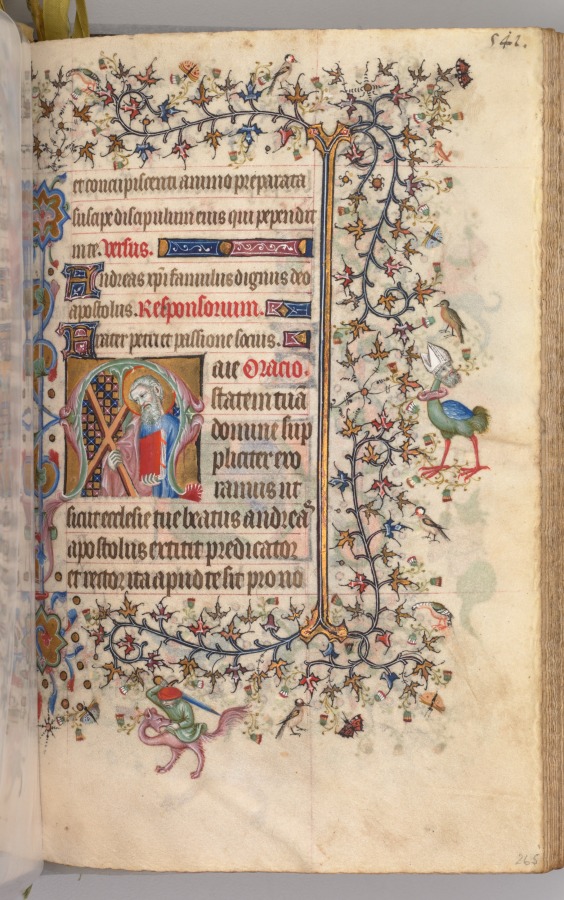 541.
et concupiscenti animo preparata
suscipe discipulum eius qui pependit
in te. Versus.
Andreas xpi famulus dignus deo
apostolus. Responsorium.
Frater petri et passione socius.
aie Oracio.
statem tuā
domine sup
pliciter exo
ramus ut
sicut ecclesie tue beatus andreas
apostolus extitit predicator
et rector ita apud te sit pro no
265